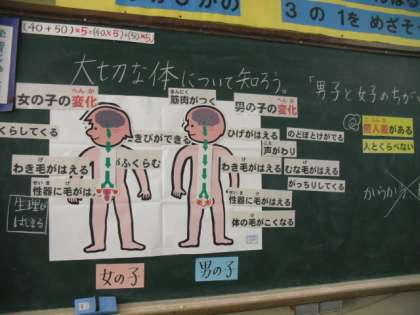 ３の１をめざそ
(40+50)×5=(40×5)+(50×5)
大切な体について知ろう。
「男子と女子のちが
女の子の変化
へんか
筋肉がつく
きんにく
男の子の変化
へんか
くらしてくる
きびができる
ひげがはえる
のどぼとけがでる
声がわり
こえ
個人差がある
こじんさ
人とくらべない
わき毛がはえる
げ
がふくらむ
わき毛がはえる
むな毛がはえる
げ
性器に毛がは
せいき
性器に毛がはえる
せいき
がっちりしてくる
体の毛がこくなる
からか
生理が
はじまる
女の子
男の子